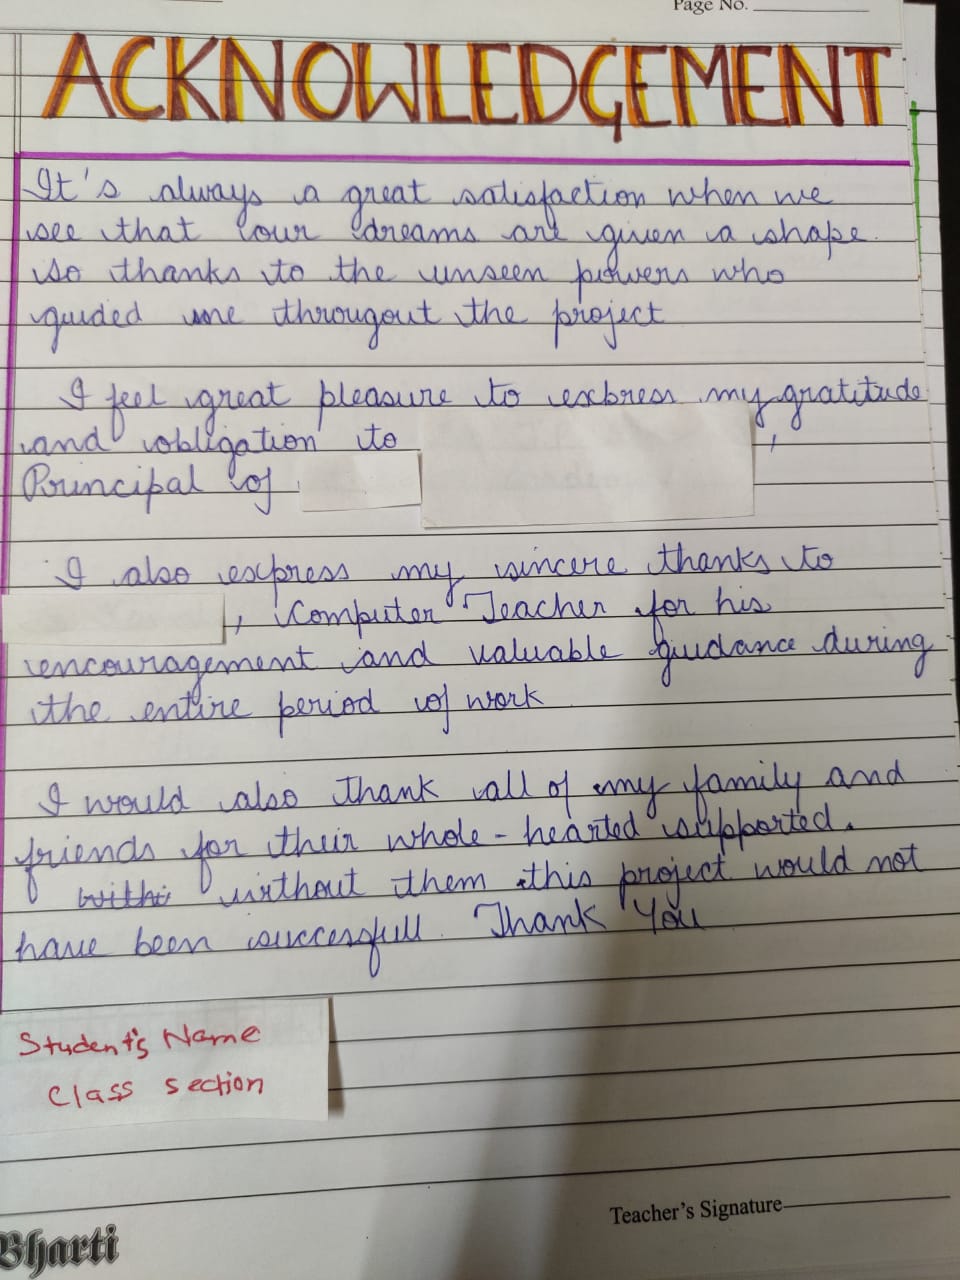 Page No.
ACKNOWLEDGEMENT
It's always a great satisfaction when we
see that our dreams are given a shape.
So thanks to the unseen powers who
guided me througout the project
I feel great pleasure to express my gratitude
and obligation to ,
Principal of
I also express my sincere thanks to
, Computer Teacher for his
encouragement and valuable guidance during
the entire period of work
I would also thank all of my family and
friends for their whole-hearted supported.
without them this project would not
have been successfull. Thank You
Student's Name
Class section
Teacher's Signature
Bharti